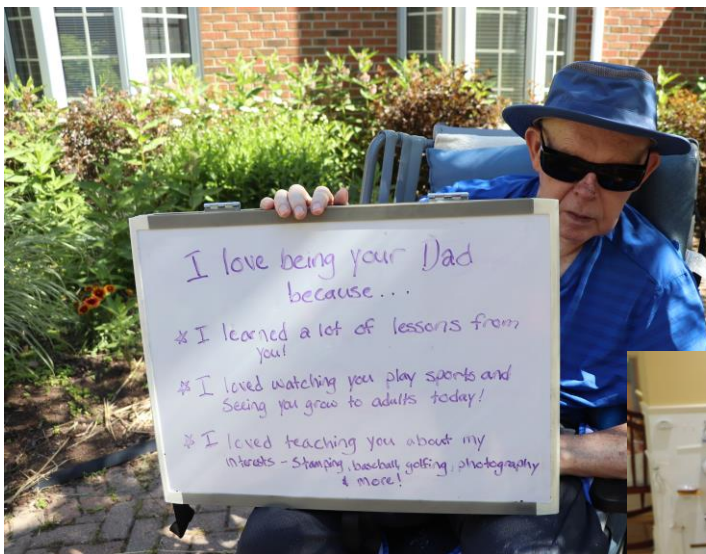 I love being your Dad
because...
☆ I learned a lot of lessons from
you!
☆ I loved watching you play sports and
seeing you grow to adults today!
☆ I loved teaching you about my
interests - Stamping, baseball, golfing, photography
& more!